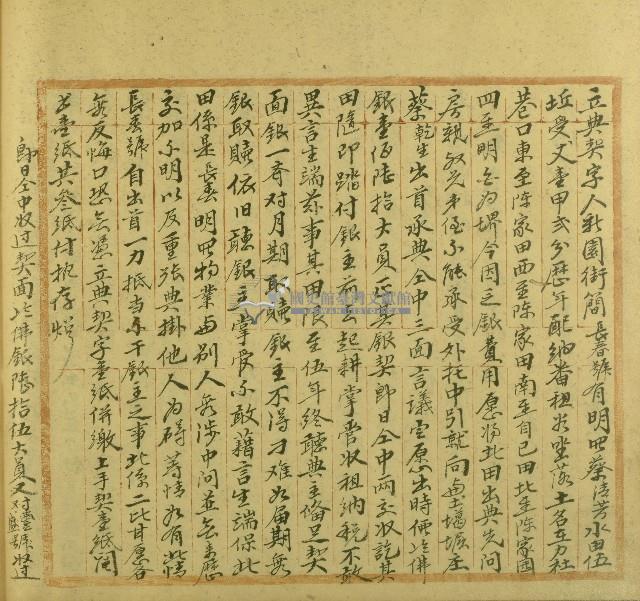 立典契字人新園街簡長春號有明典蔡清芳水田伍
坵受丈壹甲弍分歷年配納番租谷坐落土名在力社
巷口東至陳家田西至陳家田南至自己田北至陳家園
四至明白為界今因乏銀費用愿將此田出典先問
房親叔兄弟侄不能承受外托中引就向與
蔡乾生出首承典仝中三面言議定愿出時價六八佛
銀壹佰陸拾大員正其銀契即日仝中兩交收訖其
田隨即踏付銀主前去起耕掌管收租納稅不敢
異言生端滋事其田限至伍年終聽典主備足契
面銀一齊對月期取贖銀主不得刁難如屆期無
銀取贖依旧聽銀主掌受不敢藉言生端保此
田係是長春明典物業與別人無涉中間並無來歷
交加不明以及重張典掛他人為碍等情如有此情
長春號自出首一力抵当不干銀主之事此係二比甘愿各
無反悔口恐無憑立典契字壹紙併繳上手契壹紙
共參紙付執存炤
即日仝中收过契面六八佛銀陸拾伍大員又对號收过
國史館臺灣文獻館